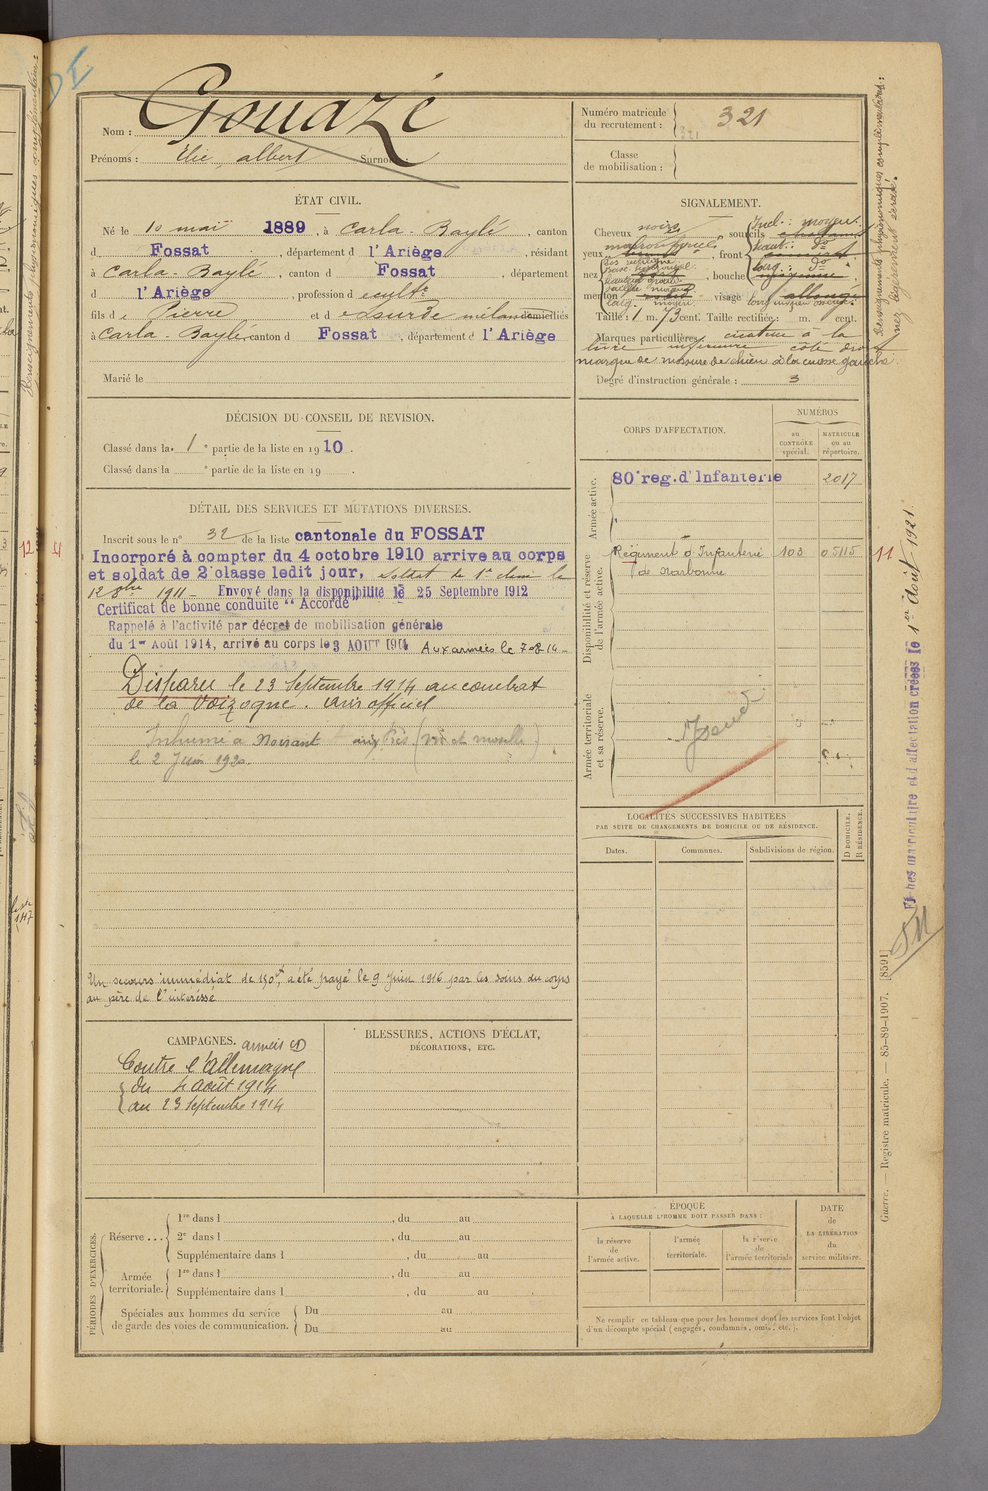 Nom : Gouazé
Prénoms : Elie albert Surnom
Numéro matricule du recrutement : 321
Classe de mobilisation :
ÉTAT CIVIL.
Né le 10 mai 1889, à Carla-Baylé, canton
d Fossat, département d l'Ariège, résidant
à Carla-Baylé, canton d Fossat, département
d l'Ariège, profession d cultr
fils de Pierre et d domiciliés
à Carla-Baylé, canton d Fossat, département d l'Ariège
Marié le
SIGNALEMENT.
Cheveux noirs, sourcils
yeux, front Incl.: moyen.
haut.: do
larg.: do
nez Dos rectiligne
Base horizontale
, bouche
menton visage
Taille : 1 m. 73 cent. Taille rectifiée : m. cent.
Marques particulières cicatrice à la
lèvre inférieure côté droit
marque de morsure de chien à la cuisse gauche
Degré d'instruction générale : 3
Renseignements physionomiques complémentaires :
nez légèrement écrasé.
DÉCISION DU CONSEIL DE REVISION.
Classé dans la 1e partie de la liste en 1910.
Classé dans la e partie de la liste en 19 .
DÉTAIL DES SERVICES ET MUTATIONS DIVERSES.
Inscrit sous le n° 32 de la liste cantonale du FOSSAT
Incorporé à compter du 4 octobre 1910 arrive au corps
et soldat de 2e classe ledit jour, Soldat de 1e classe le
12 8bre 1911 - Envoyé dans la disponibilité le 25 Septembre 1912
Certificat de bonne conduite "Accordé"
Rappelé à l'activité par décret de mobilisation générale
du 1er Août 1914, arrivé au corps le 3 AOUT 1914 Aux armées le 7-8-14-
Disparu le 23 Septembre 1914 au combat
de la Voizogne. avis officiel
Inhumé à Noirant
le 2 Juin 1920.
Un secours immédiat de 150f, a été payé le 9 Juin 1916 par les soins du corps
au père de l'intéressé
CORPS D'AFFECTATION.
NUMÉROS
au CONTRÔLE spécial.
MATRICULE ou au répertoire.
Armée active.
80e reg. d'Infanterie 2017
Disponibilité et réserve de l'armée active.
Régiment d'Infanterie 103 05115
de Narbonne
Armée territoriale et sa réserve.
11
Fiches matriculaire et d'affectation créées le 1er Août 1921.
LOCALITÉS SUCCESSIVES HABITÉES
PAR SUITE DE CHANGEMENTS DE DOMICILE OU DE RÉSIDENCE.
Dates.
Communes.
Subdivisions de région.
D DOMICILE.
R RÉSIDENCE.
CAMPAGNES. armées
Contre l'Allemagne
du 4 août 1914
au 23 Septembre 1914
BLESSURES, ACTIONS D'ÉCLAT,
DÉCORATIONS, ETC.
PÉRIODES D'EXERCICES.
Réserve ... 1re dans l , du au
2e dans l , du au
Supplémentaire dans l , du au
Armée territoriale. 1re dans l , du au
Supplémentaire dans l , du au
Spéciales aux hommes du service de garde des voies de communication. Du au
Du au
ÉPOQUE
À LAQUELLE L'HOMME DOIT PASSER DANS :
la réserve de l'armée active.
l'armée territoriale.
la réserve de l'armée territoriale
DATE de LA LIBÉRATION du service militaire.
Ne remplir ce tableau que pour les hommes dont les services font l'objet
d'un décompte spécial (engagés, condamnés, omis, etc.).
Guerre. — Registre matricule. — 85-89-1907. [8591]